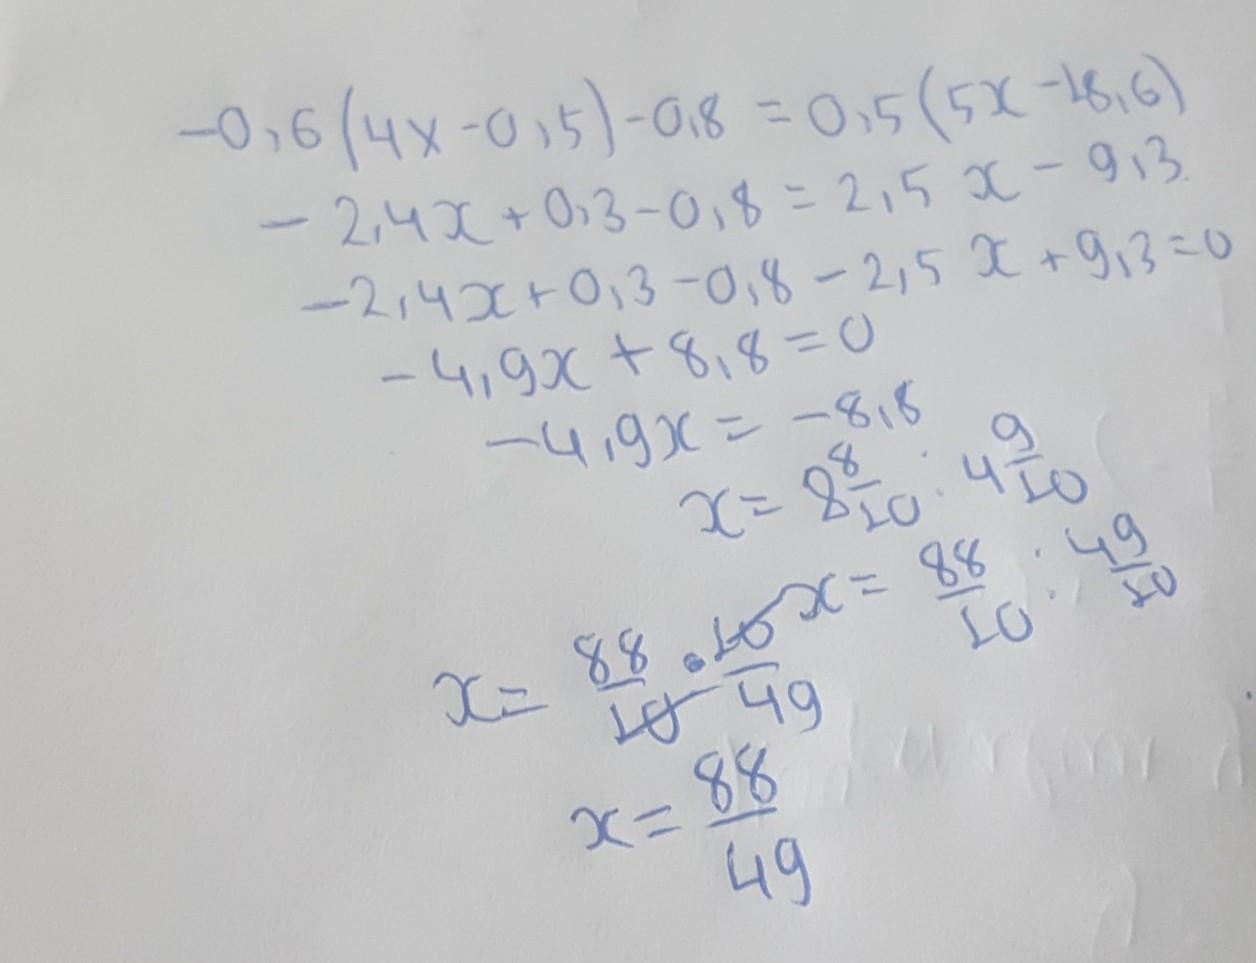 -0,6(4x-0,5)-0,8=0,5(5x-18,6)
-2,4x+0,3-0,8=2,5x-9,3
-2,4x+0,3-0,8-2,5x+9,3=0
-4,9x+8,8=0
-4,9x=-8,8
x=8 8/10 : 4 9/10
x=88/10 : 49/10
x=88/10 · 10/49
x=88/49